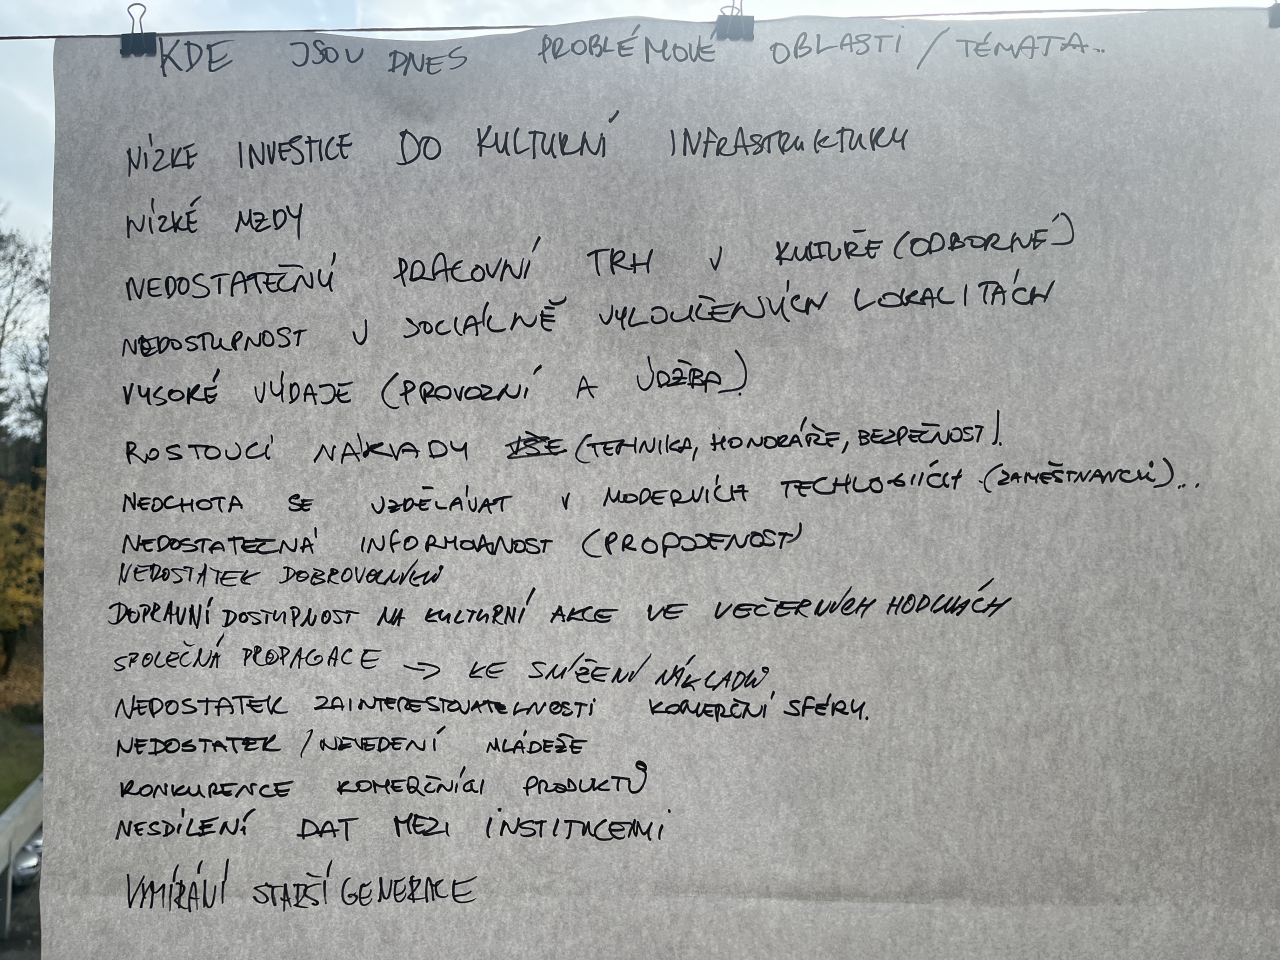 KDE JSOU DNES PROBLÉMOVÉ OBLASTI / TÉMATA..
NÍZKÉ INVESTICE DO KULTURNÍ INFRASTRUKTURY
NÍZKÉ MZDY
NEDOSTATEČNÝ PRACOVNÍ TRH V KULTUŘE (ODBORNÉ)
NEDOSTUPNOST V SOCIÁLNĚ VYLOUČENÝCH LOKALITÁCH
VYSOKÉ VÝDAJE (PROVOZNÍ A ÚDRŽBA)
ROSTOUCÍ NÁKLADY VŠE (TEHNIKA, HONORÁŘE, BEZPEČNOST).
NEOCHOTA SE VZDĚLÁVAT V MODERNÍCH TECHLOGIÍCH (ZAMĚSTNANCŮ)...
NEDOSTATEČNÁ INFORMOVANOST (PROPOJENOST)
NEDOSTATEK DOBROVOLNÍKŮ
DOPRAVNÍ DOSTUPNOST NA KULTURNÍ AKCE VE VEČERNÍCH HODINÁCH
SPOLEČNÁ PROPAGACE → KE SNÍŽENÍ NÁKLADŮ
NEDOSTATEK ZAINTERESTOVATELNOSTI KOMERČNÍ SFÉRY.
NEDOSTATEK / NEVEDENÍ MLÁDEŽE
KONKURENCE KOMERČNÍCH PRODUKTŮ
NESDÍLENÍ DAT MEZI INSTITUCEMI
VYMÍRÁNÍ STARŠÍ GENERACE